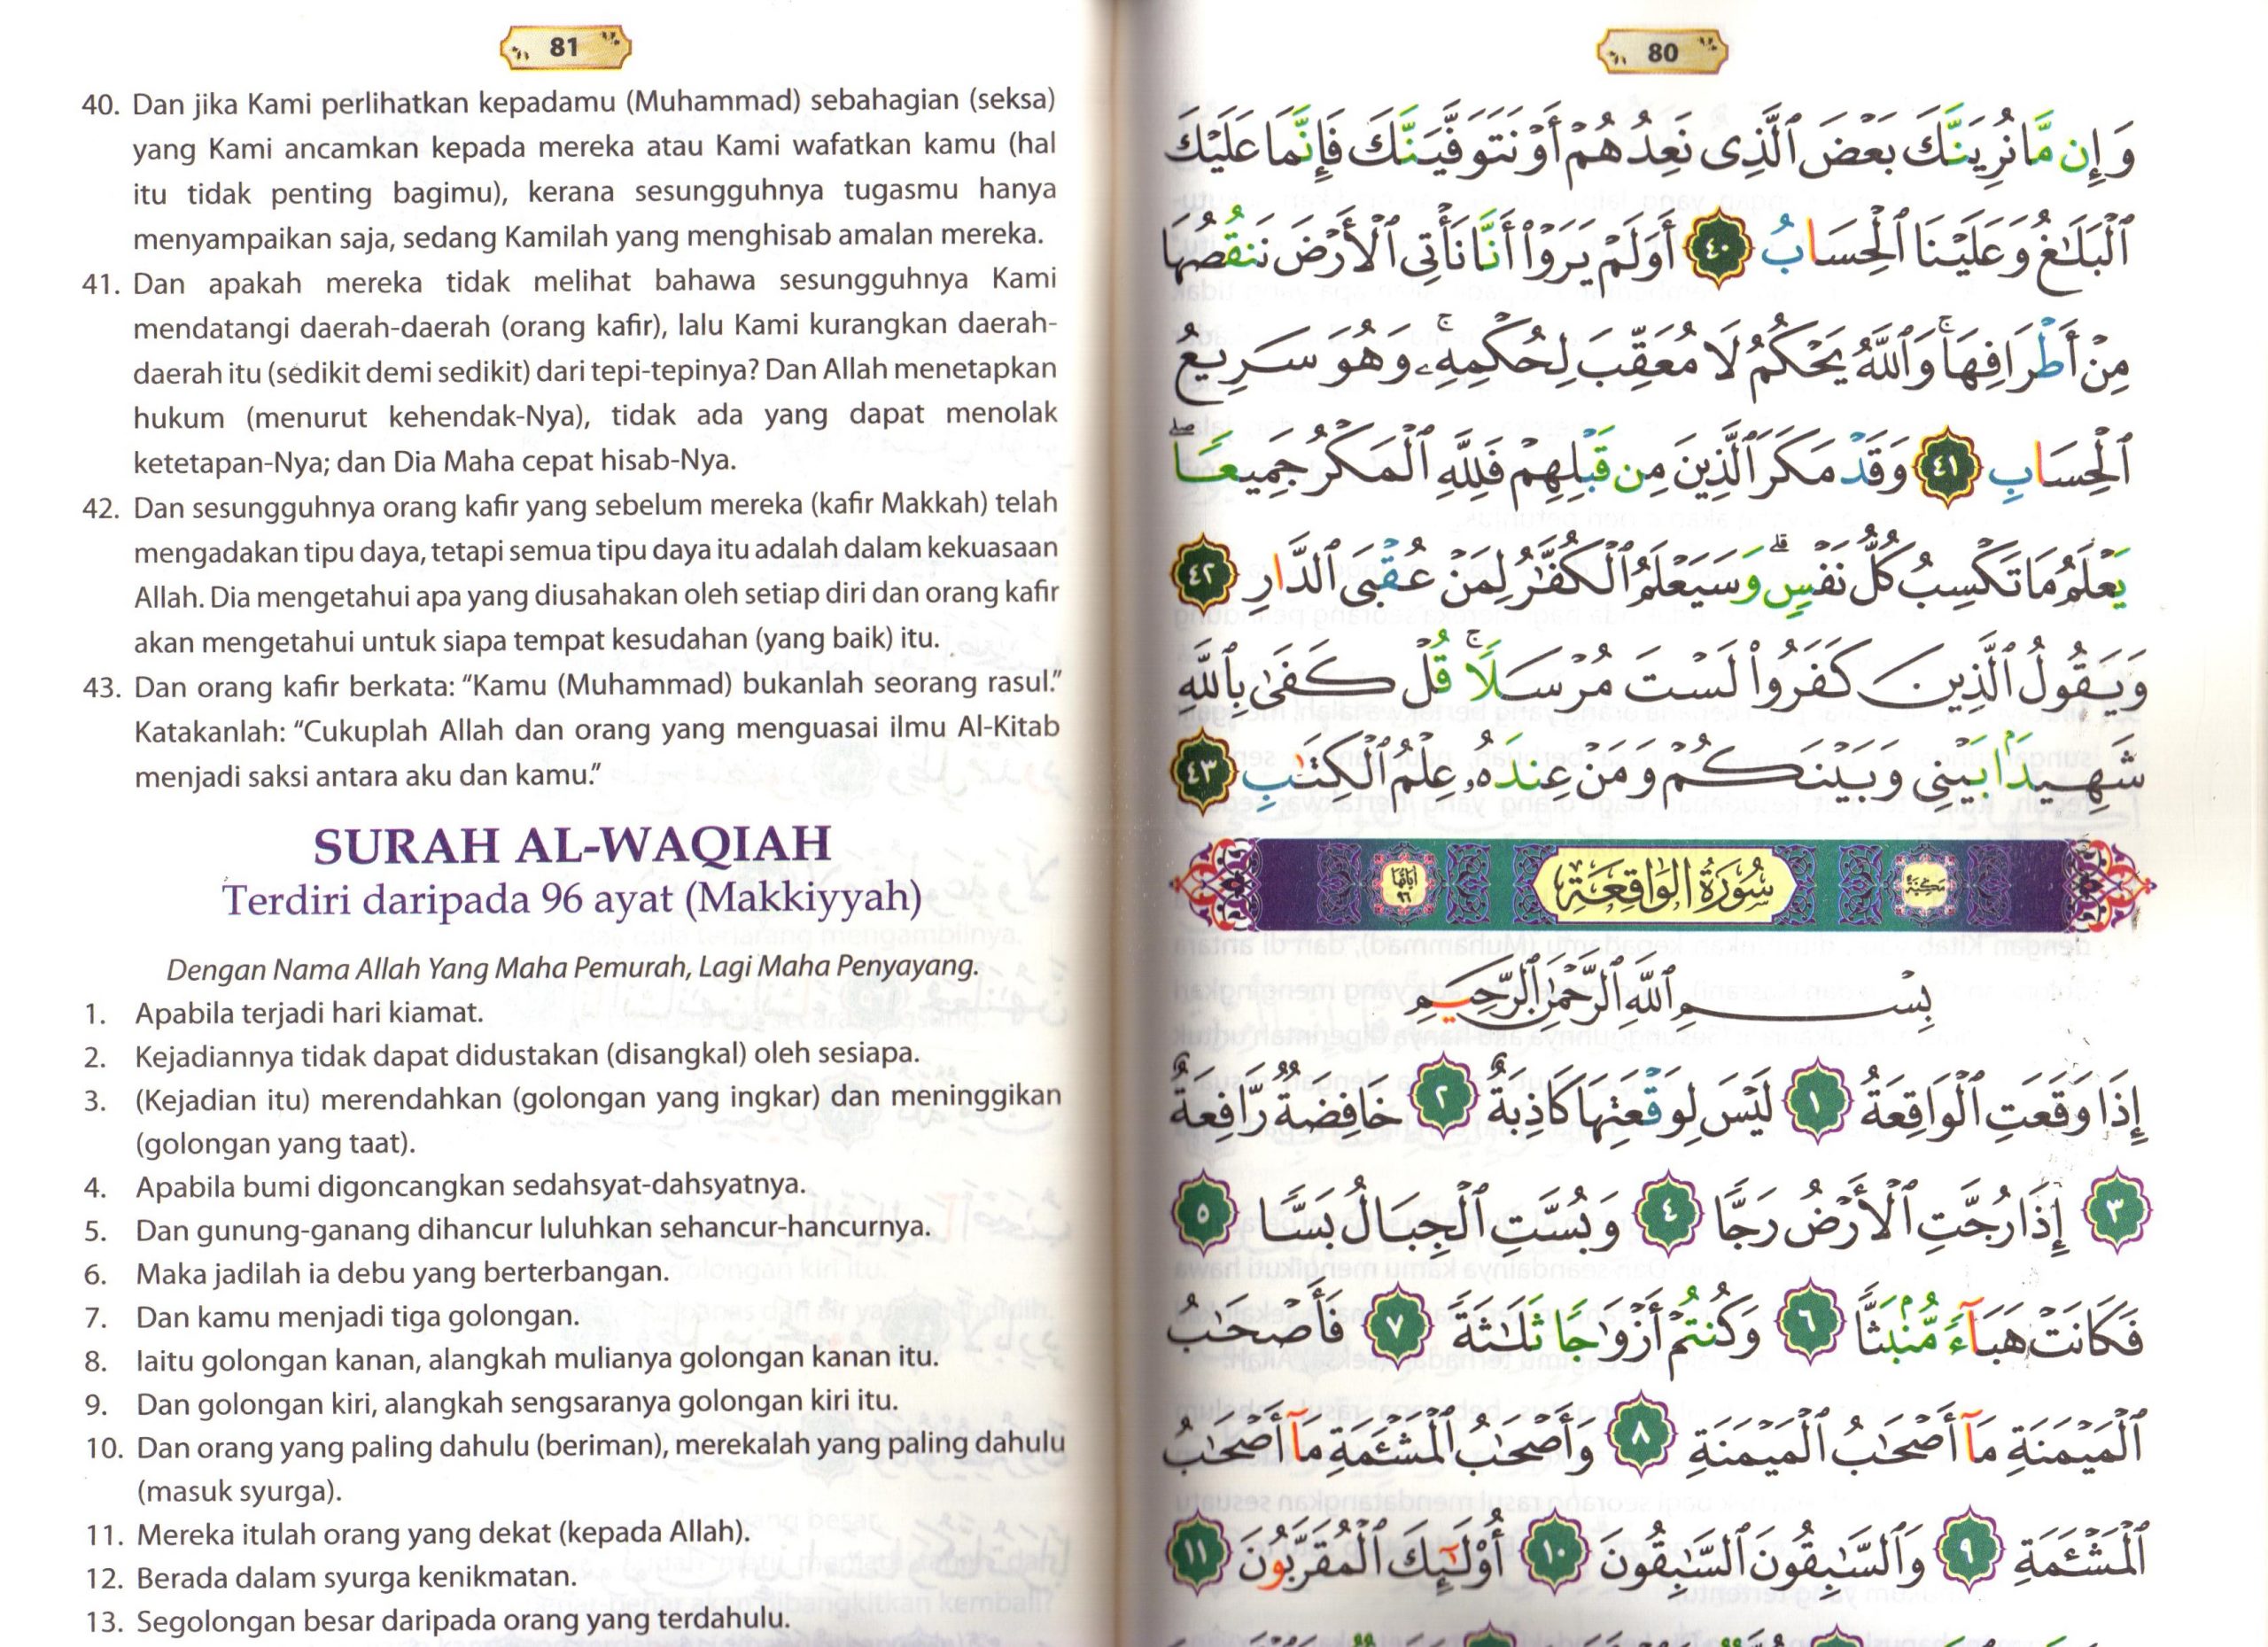 81
40. Dan jika Kami perlihatkan kepadamu (Muhammad) sebahagian (seksa)
yang Kami ancamkan kepada mereka atau Kami wafatkan kamu (hal
itu tidak penting bagimu), kerana sesungguhnya tugasmu hanya
menyampaikan saja, sedang Kamilah yang menghisab amalan mereka.
41. Dan apakah mereka tidak melihat bahawa sesungguhnya Kami
mendatangi daerah-daerah (orang kafir), lalu Kami kurangkan daerah-
daerah itu (sedikit demi sedikit) dari tepi-tepinya? Dan Allah menetapkan
hukum (menurut kehendak-Nya), tidak ada yang dapat menolak
ketetapan-Nya; dan Dia Maha cepat hisab-Nya.
42. Dan sesungguhnya orang kafir yang sebelum mereka (kafir Makkah) telah
mengadakan tipu daya, tetapi semua tipu daya itu adalah dalam kekuasaan
Allah. Dia mengetahui apa yang diusahakan oleh setiap diri dan orang kafir
akan mengetahui untuk siapa tempat kesudahan (yang baik) itu.
43. Dan orang kafir berkata: “Kamu (Muhammad) bukanlah seorang rasul.”
Katakanlah: “Cukuplah Allah dan orang yang menguasai ilmu Al-Kitab
menjadi saksi antara aku dan kamu.”
SURAH AL-WAQIAH
Terdiri daripada 96 ayat (Makkiyyah)
Dengan Nama Allah Yang Maha Pemurah, Lagi Maha Penyayang.
1. Apabila terjadi hari kiamat.
2. Kejadiannya tidak dapat didustakan (disangkal) oleh sesiapa.
3. (Kejadian itu) merendahkan (golongan yang ingkar) dan meninggikan
(golongan yang taat).
4. Apabila bumi digoncangkan sedahsyat-dahsyatnya.
5. Dan gunung-ganang dihancur luluhkan sehancur-hancurnya.
6. Maka jadilah ia debu yang berterbangan.
7. Dan kamu menjadi tiga golongan.
8. Iaitu golongan kanan, alangkah mulianya golongan kanan itu.
9. Dan golongan kiri, alangkah sengsaranya golongan kiri itu.
10. Dan orang yang paling dahulu (beriman), merekalah yang paling dahulu
(masuk syurga).
11. Mereka itulah orang yang dekat (kepada Allah).
12. Berada dalam syurga kenikmatan.
13. Segolongan besar daripada orang yang terdahulu.
80
وَإِن مَّا نُرِيَنَّكَ بَعْضَ ٱلَّذِى نَعِدُهُمْ أَوْ نَتَوَفَّيَنَّكَ فَإِنَّمَا عَلَيْكَ
ٱلْبَلَٰغُ وَعَلَيْنَا ٱلْحِسَابُ ٤٠ أَوَلَمْ يَرَوْا۟ أَنَّا نَأْتِى ٱلْأَرْضَ نَنقُصُهَا
مِنْ أَطْرَافِهَا ۚ وَٱللَّهُ يَحْكُمُ لَا مُعَقِّبَ لِحُكْمِهِۦ ۚ وَهُوَ سَرِيعُ
ٱلْحِسَابِ ٤١ وَقَدْ مَكَرَ ٱلَّذِينَ مِن قَبْلِهِمْ فَلِلَّهِ ٱلْمَكْرُ جَمِيعًا ۖ
يَعْلَمُ مَا تَكْسِبُ كُلُّ نَفْسٍ ۗ وَسَيَعْلَمُ ٱلْكُفَّٰرُ لِمَنْ عُقْبَى ٱلدَّارِ ٤٢
وَيَقُولُ ٱلَّذِينَ كَفَرُوا۟ لَسْتَ مُرْسَلًا ۚ قُلْ كَفَىٰ بِٱللَّهِ
شَهِيدًۢا بَيْنِى وَبَيْنَكُمْ وَمَنْ عِندَهُۥ عِلْمُ ٱلْكِتَٰبِ ٤٣
مَكِّيَّةٌ سُورَةُ الْوَاقِعَةِ آيَاتُهَا ٩٦
بِسْمِ ٱللَّهِ ٱلرَّحْمَٰنِ ٱلرَّحِيمِ
إِذَا وَقَعَتِ ٱلْوَاقِعَةُ ١ لَيْسَ لِوَقْعَتِهَا كَاذِبَةٌ ٢ خَافِضَةٌ رَّافِعَةٌ
٣ إِذَا رُجَّتِ ٱلْأَرْضُ رَجًّا ٤ وَبُسَّتِ ٱلْجِبَالُ بَسًّا ٥
فَكَانَتْ هَبَآءً مُّنۢبَثًّا ٦ وَكُنتُمْ أَزْوَٰجًا ثَلَٰثَةً ٧ فَأَصْحَٰبُ
ٱلْمَيْمَنَةِ مَآ أَصْحَٰبُ ٱلْمَيْمَنَةِ ٨ وَأَصْحَٰبُ ٱلْمَشْـَٔمَةِ مَآ أَصْحَٰبُ
ٱلْمَشْـَٔمَةِ ٩ وَٱلسَّٰبِقُونَ ٱلسَّٰبِقُونَ ١٠ أُو۟لَٰٓئِكَ ٱلْمُقَرَّبُونَ ١١